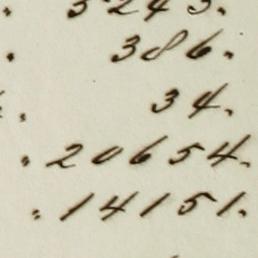 3243.
. 386.
. 34.
. 20654.
. 14151.